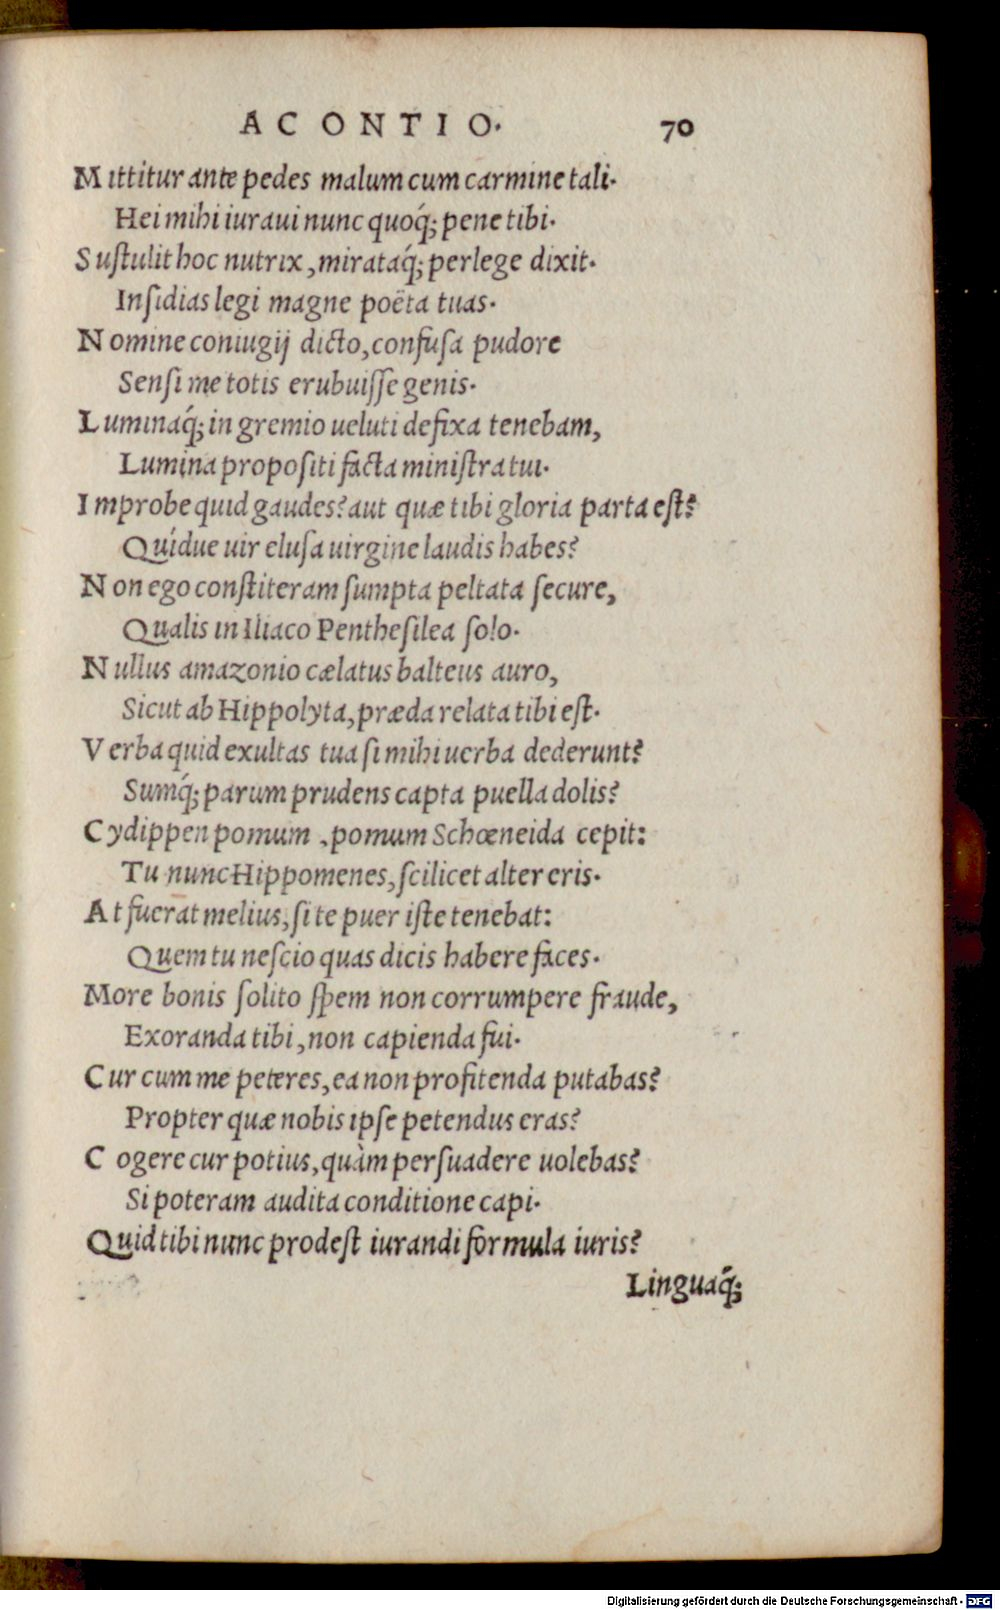 ACONTIO. 70
Mittitur ante pedes malum cum carmine tali.
Hei mihi iuraui nunc quoq́; pene tibi.
Sustulit hoc nutrix, mirataq́; perlege dixit.
Insidias legi magne poëta tuas.
Nomine coniugij dicto, confusa pudore
Sensi me totis erubuisse genis.
Luminaq́; in gremio ueluti defixa tenebam,
Lumina propositi facta ministra tui.
Improbe quid gaudes? aut quæ tibi gloria parta est?
Quidue uir elusa uirgine laudis habes?
Non ego constiteram sumpta peltata secure,
Qualis in Iliaco Penthesilea solo.
Nullus amazonio cælatus balteus auro,
Sicut ab Hippolyta, præda relata tibi est.
Verba quid exultas tua si mihi uerba dederunt?
Sumq́; parum prudens capta puella dolis?
Cydippen pomum, pomum Schœneida cepit:
Tu nunc Hippomenes, scilicet alter eris.
At fuerat melius, si te puer iste tenebat:
Quem tu nescio quas dicis habere faces.
More bonis solito spem non corrumpere fraude,
Exoranda tibi, non capienda fui.
Cur cum me peteres, ea non profitenda putabas?
Propter quæ nobis ipse petendus eras?
Cogere cur potius, quàm persuadere uolebas?
Si poteram audita conditione capi.
Quid tibi nunc prodest iurandi formula iuris?
Linguaq́;
Digitalisierung gefördert durch die Deutsche Forschungsgemeinschaft - DFG